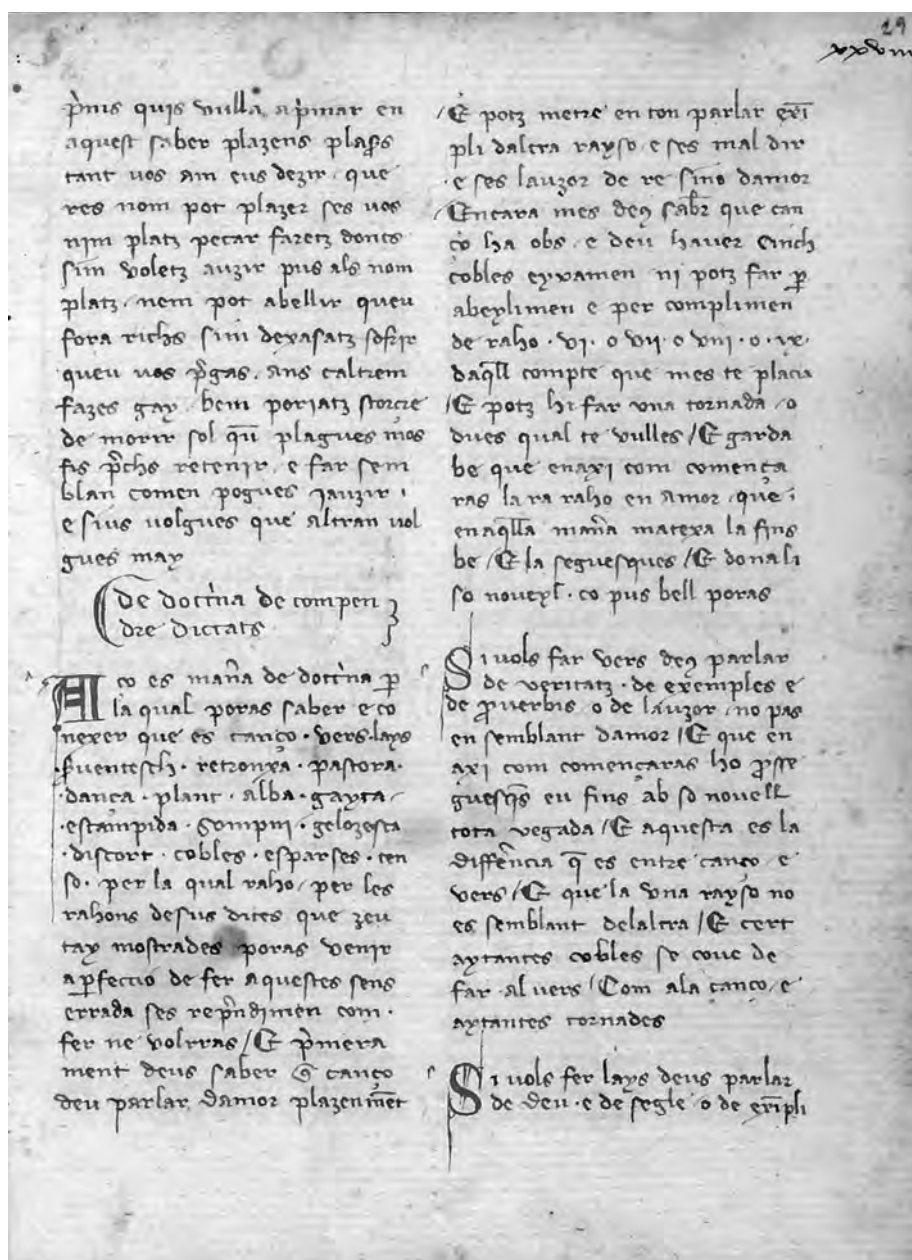 29
xxviii
p̃mis quis vulla ap̃mar en
aquest saber plazens plaſꝫs
tant vos am eus dezir · que
res nom pot plazer ses vos
nim platz pecar faretz doncs
sim voletz auzir pus als nom
platz · nem pot abellir queu
fora richs simi dexasatz sofrir
queu vos p̃gas · ans caltrem
fazes gay · bem poriatz storcre
de morir sol qũ plagues mos
fis p̃chs retenir · e far sem
blan comen pogues iauzir ·
e sius volgues que altran vol
gues may
de docti̾na de compen
dre dictats
Aco es mañа de docti̾na ꝑ
la qual poras saber e co
nexer que es canço · vers · lays
· s̾ventesch · retronxa · pastora ·
· dança · plant · alba · gayta /
· estampida · sompni · gelozesca
· discort · cobles · esparses · ten
so · per la qual raho / per les
rahons desus dites que zeu
tay mostrades poras venir
a ꝑfectio de fer aquestes sens
errada ses rep̃ndimen com ·
fer ne volrras / E p̃mera
ment deus saber q̃ canço
deu parlar damor plazenm̃et
/ E potz metre en ton parlar exi̅
pli daltra rayso · e ses mal dir
· e ses lauzor de re sino damor
/ Encara mes deꝯ sab̾r que can
ço ha obs · e deu haver cinch
cobles eyxamen ni potz far ꝑ
abeylimen e per complimen
de raho · vi · o vii · o viii · o · ix ·
daq̃ll compte que mes te placia
/ E potz hi far vna tornada · o
dues qual te vulles / E garda
be que enaxi com comença
ras la ra raho en amor · que ·
en aq̃lla mañа matexa la fins
be / E la seguesques / E dona li
so noveyl · co pus bell poras
Si vols far vers deꝯ parlar
de veritatz · de exemples e
de ꝓverbis o de lauzor · no pas
en semblant damor / E que en
axi com començaras ho ꝓse
guesq̃s eu fins ab so novell
tota vegada / E aquesta es la
differ̃encia q̃ es entre canço · e
vers / E que la vna rayso no
es semblant delaltra / E cert
aytantes cobles se cove de
far · al vers / Com ala canço / e
aytantes tornades
Si vols fer lays deus parlar
de deu · e de segle · o de exi̅pli